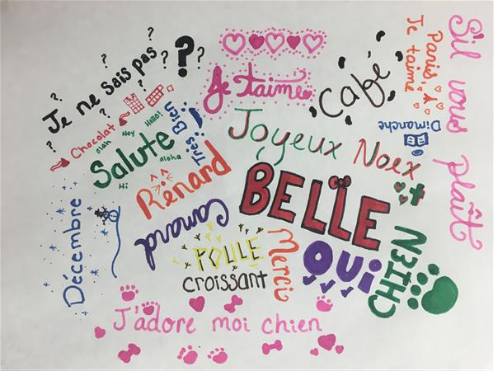 Je ne sais pas ?
Je t'aime
Café
Paris
Je t'aime
S'il vous plaît
Chocolat
Hey
Hello!
Salute
aloha
Hi
Très Bien!
Joyeux Noex
Dimanche
Renard
BELLE
Décembre
Canard
POULE
croissant
Merci
OUI
CHIEN
J'adore moi chien